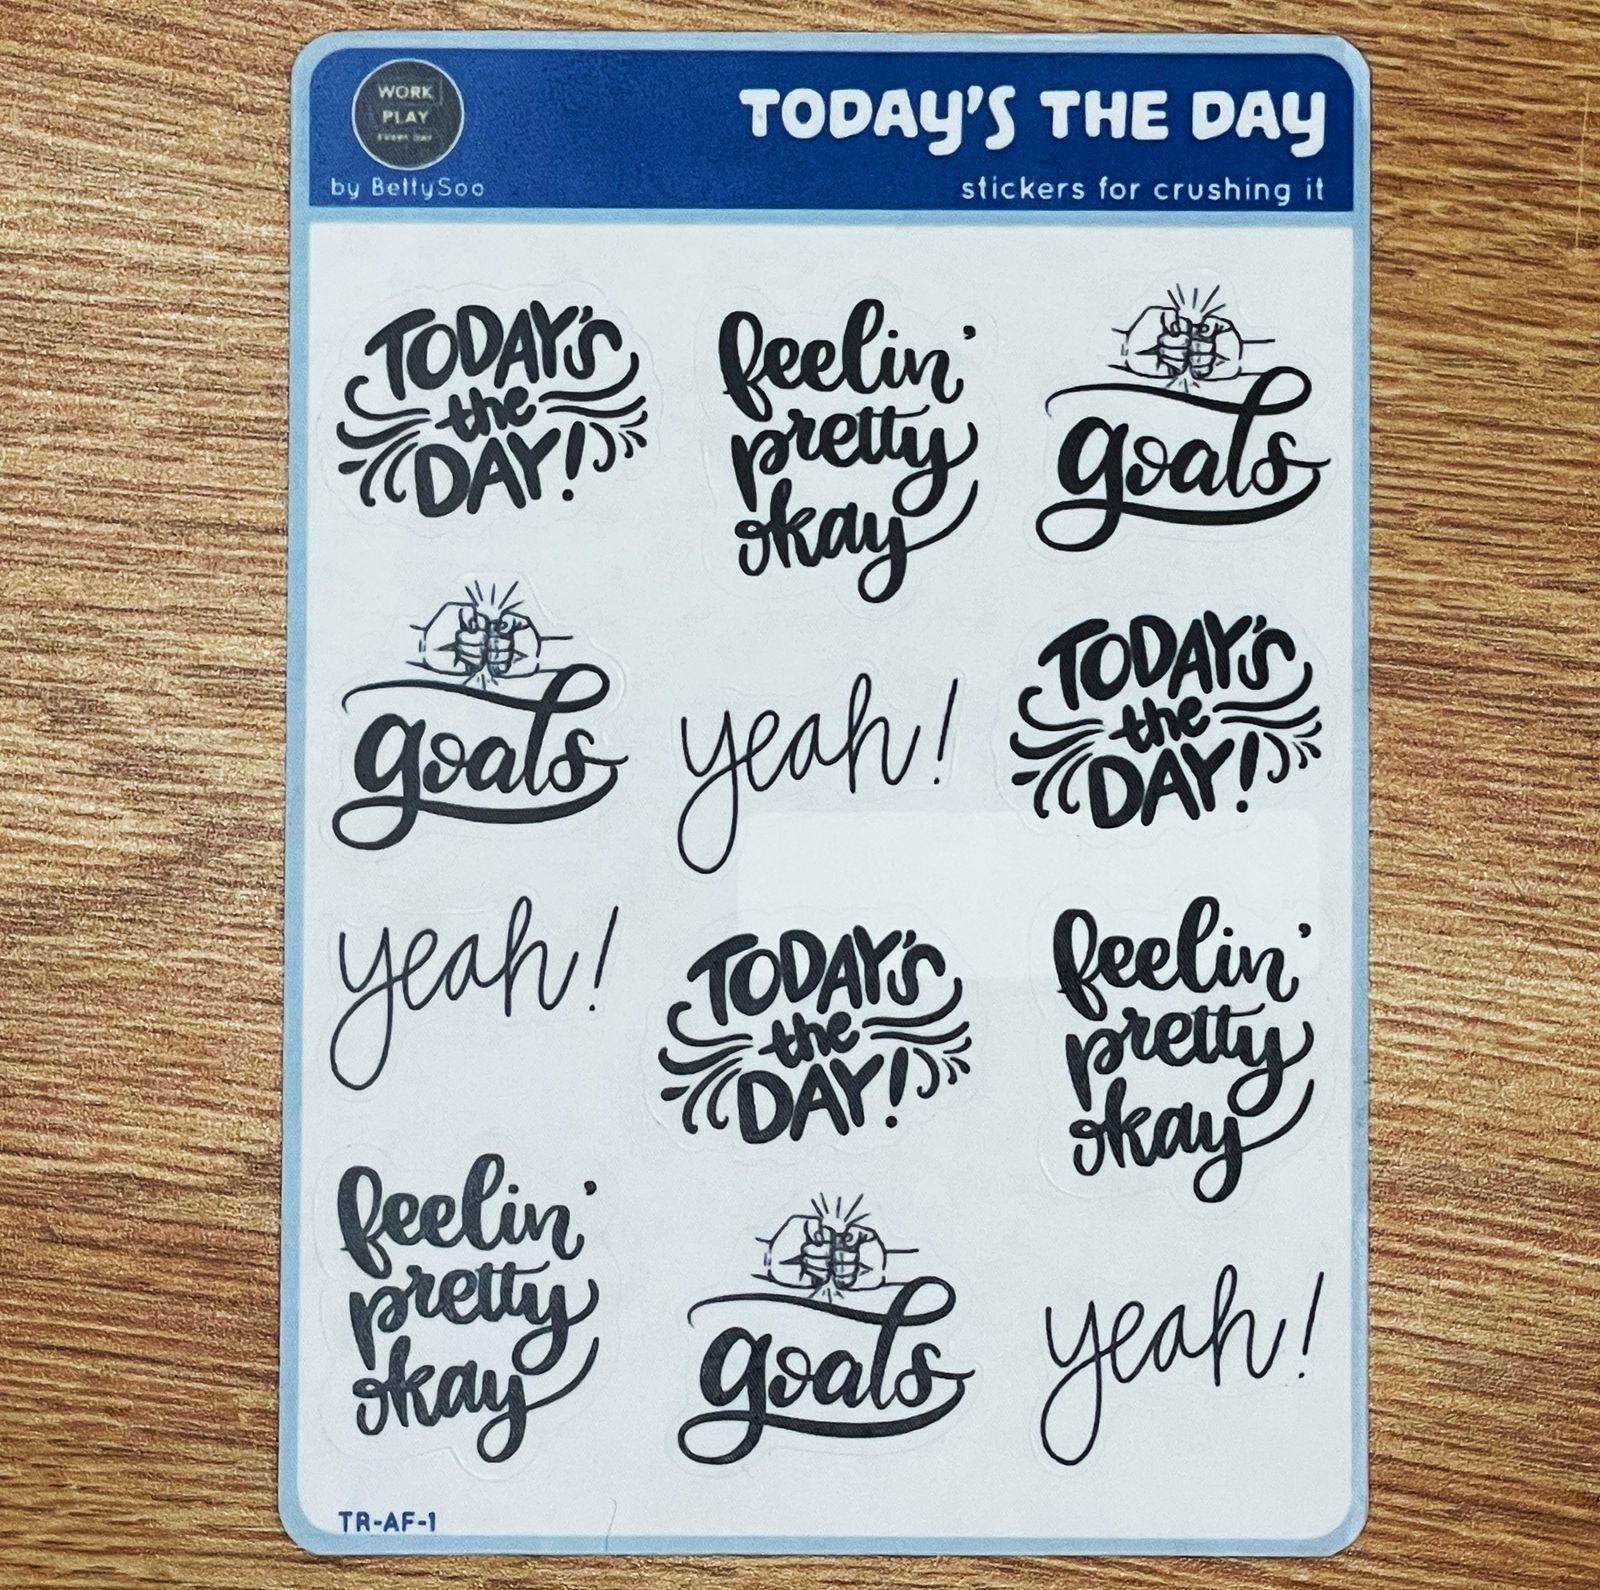 WORK
PLAY
EVERY DAY
by BettySoo
TODAY'S THE DAY
stickers for crushing it
TODAY'S
the
DAY!
feelin'
pretty
okay
goals
goals
yeah!
TODAY'S
the
DAY!
yeah!
TODAY'S
the
DAY!
feelin'
pretty
okay
feelin'
pretty
okay
goals
yeah!
TR-AF-1